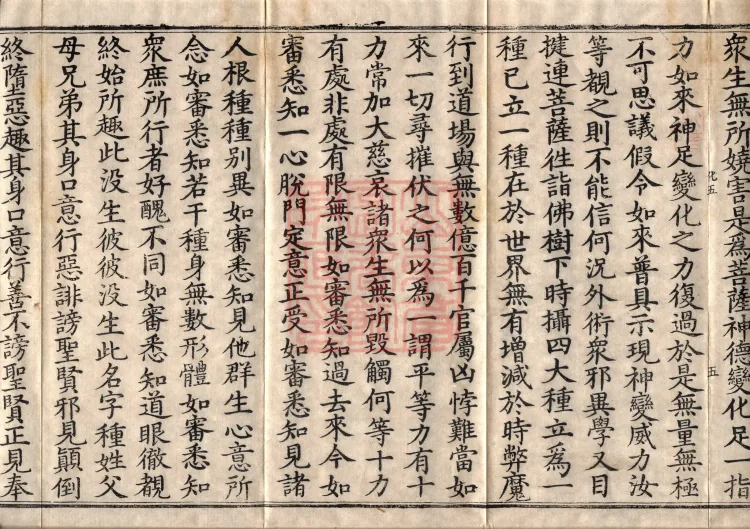 衆生無所嬈害是為菩薩神德變化足一指
力如來神足變化之力復過於是無量無極
不可思議假令如來普具示現神變威力汝
等覩之則不能信何況外術衆邪異學又目
揵連菩薩徃詣佛樹下時攝四大種立為一
種已立一種在於世界無有增減於時弊魔
行到道場與無數億百千官屬凶悖難當如
來一切尋摧伏之何以為一謂平等力有十
力常加大慈哀諸衆生無所毀觸何等十力
有處非處有限無限如審悉知過去來今如
審悉知一心脫門定意正受如審悉知見諸
人根種種別異如審悉知見他群生心意所
念如審悉知若干種身無數形體如審悉知
衆庶所行者好醜不同如審悉知道眼徹覩
終始所趣此没生彼彼没生此名字種姓父
母兄弟其身口意行惡誹謗聖賢邪見顛倒
終隋惡趣其身口意行善不謗聖賢正見奉
化五
五